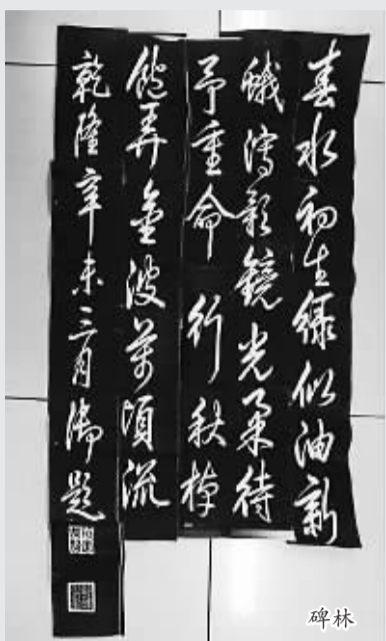 春水初生綠似油新
蛾瀉影鏡光柔待
予重命行秋棹
飽弄金波萬頃流
乾隆辛未三月御題
碑林